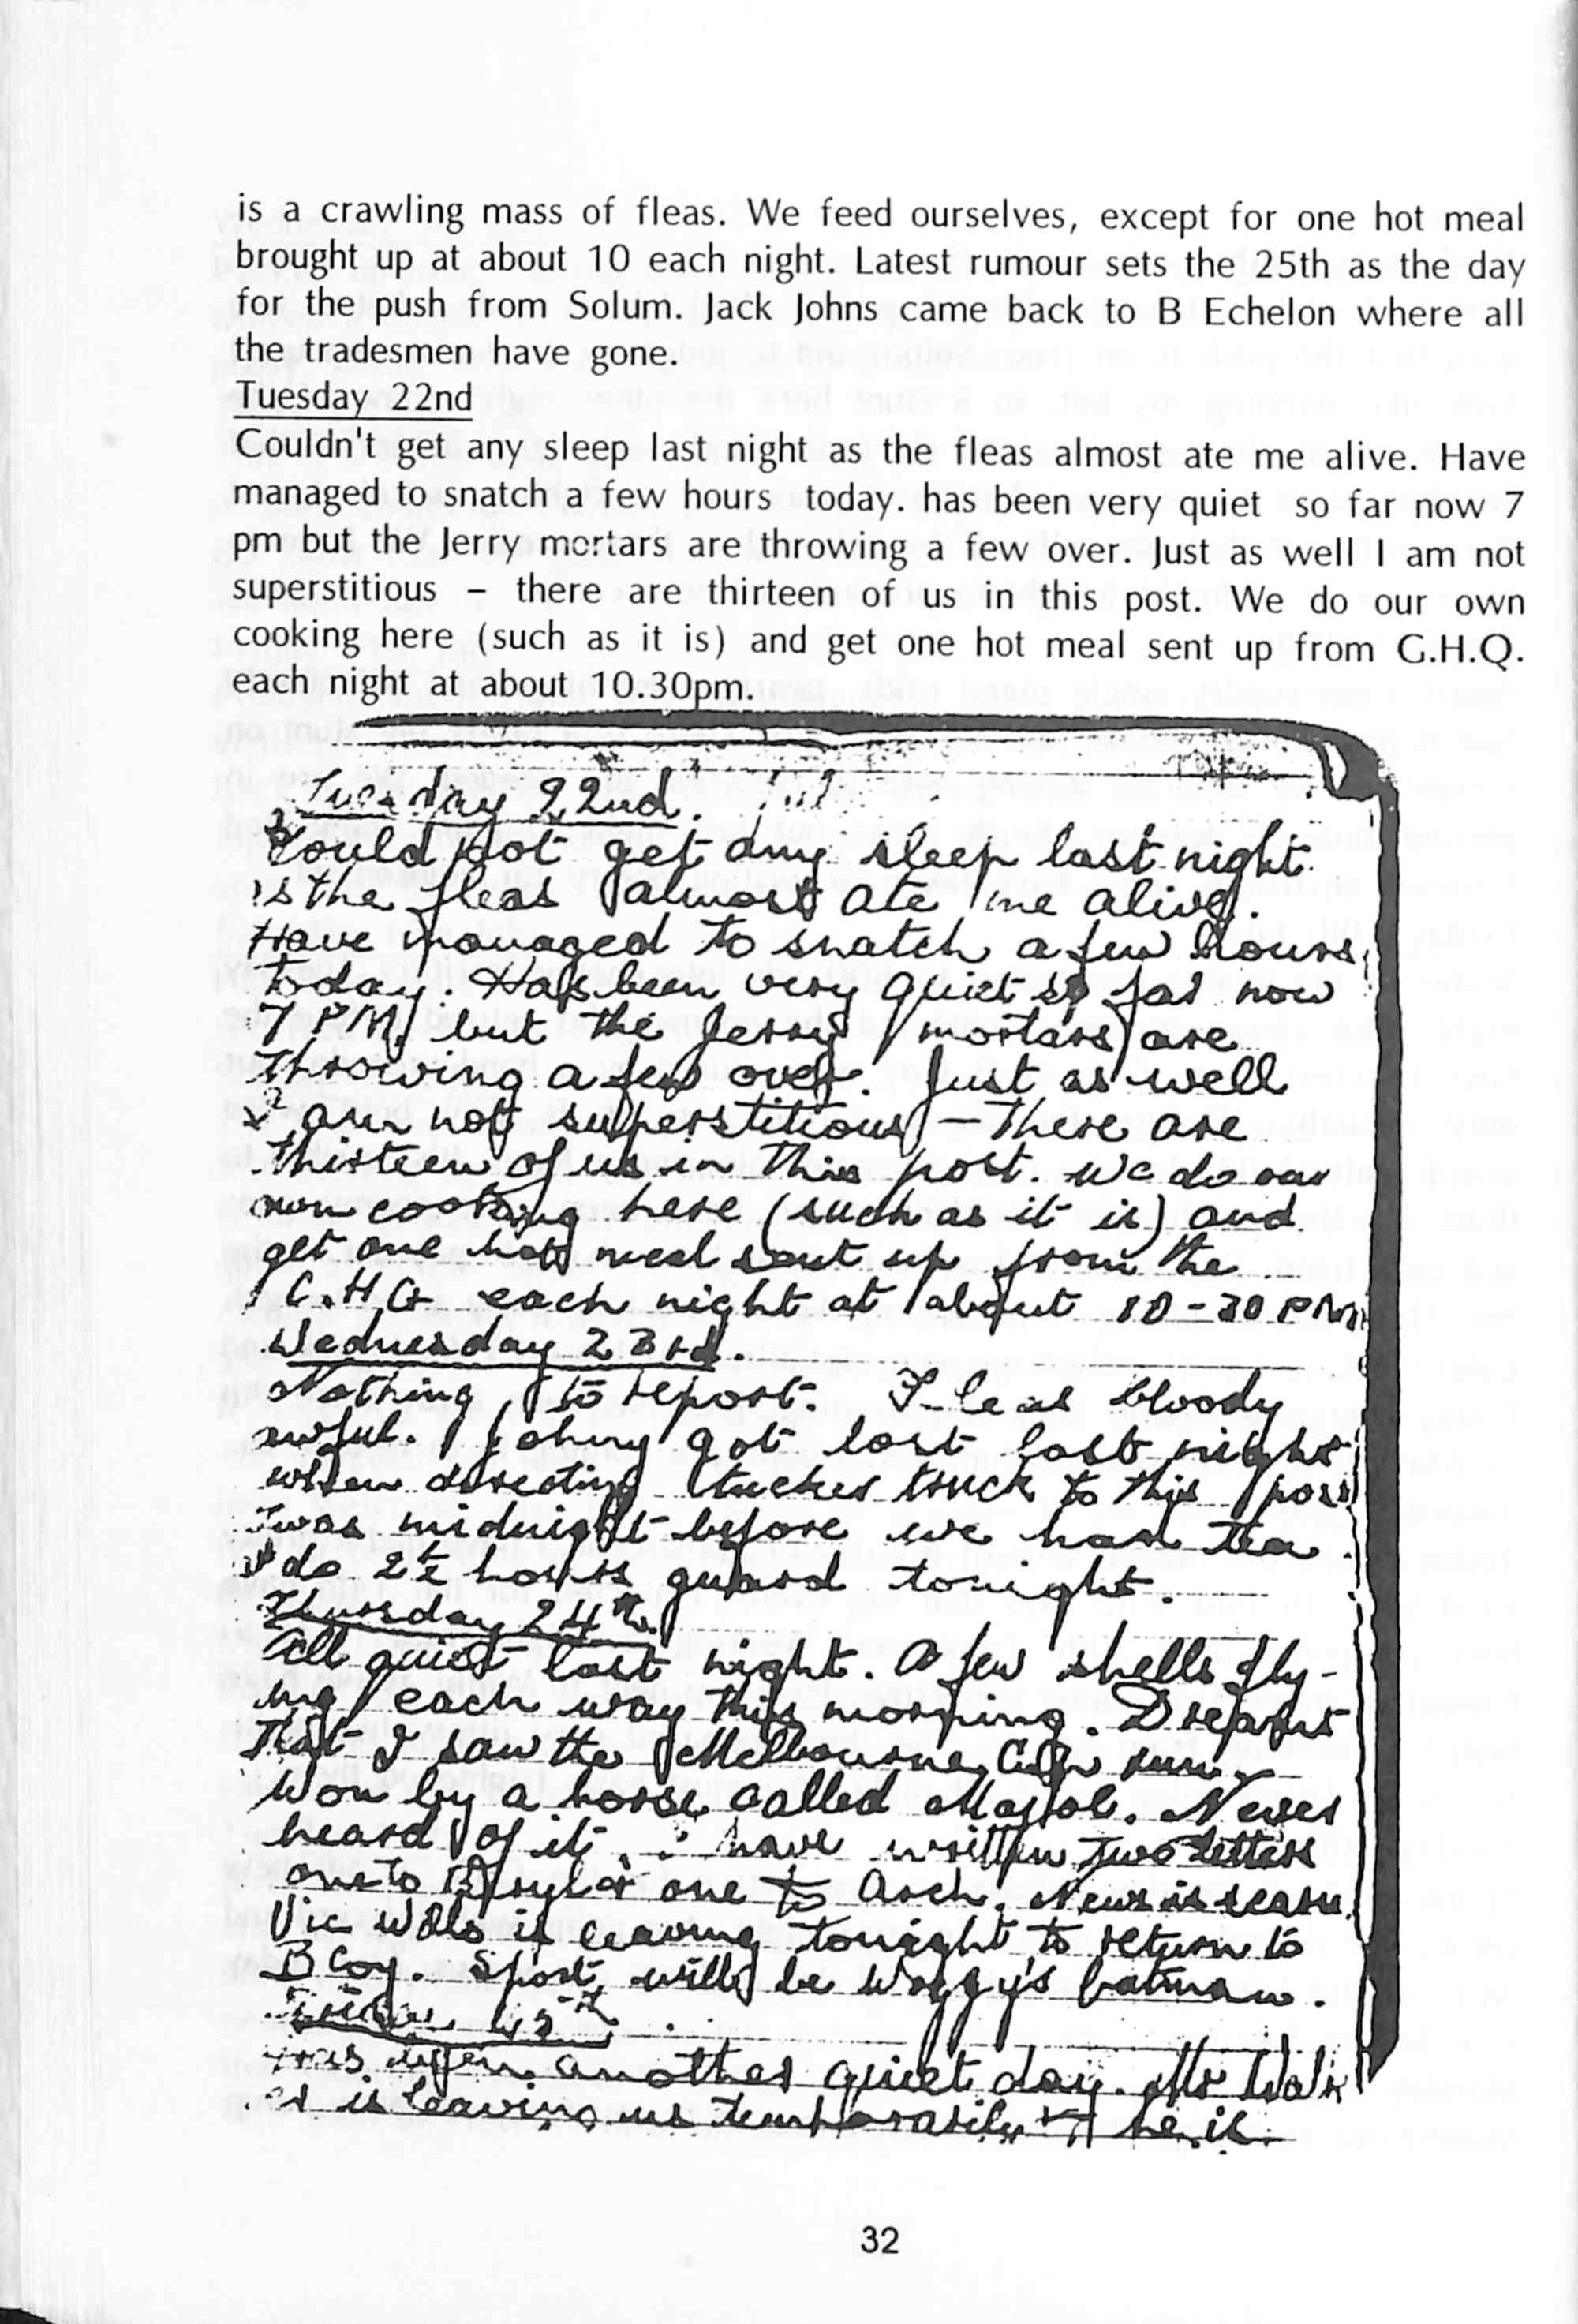 is a crawling mass of fleas. We feed ourselves, except for one hot meal
brought up at about 10 each night. Latest rumour sets the 25th as the day
for the push from Solum. Jack Johns came back to B Echelon where all
the tradesmen have gone.
Tuesday 22nd
Couldn't get any sleep last night as the fleas almost ate me alive. Have
managed to snatch a few hours today. has been very quiet so far now 7
pm but the Jerry mortars are throwing a few over. Just as well I am not
superstitious – there are thirteen of us in this post. We do our own
cooking here (such as it is) and get one hot meal sent up from G.H.Q.
each night at about 10.30pm.
Tuesday 22nd.
Could not get any sleep last night
as the fleas almost ate me alive.
Have managed to snatch a few hours
today. Has been very quiet so far now
7 PM, but the Jerry mortars are
throwing a few over. Just as well
I am not superstitious – there are
thirteen of us in this post. We do our
own cooking here (such as it is) and
get one hot meal sent up from the
C.H.Q each night at about 10-30 PM
Wednesday 23rd.
Nothing to report. Fleas bloody
awful. Johny got lost last night
when directing tucker truck to this post
Twas midnight before we had tea.
do 2½ hours guard tonight.
Thursday 24th.
All quiet last night. A few shells fly-
ing each way this morning. Dreamt
that I saw the Melbourne Cup run.
Won by a horse called . Never
heard of it. I have written two letters
one to Beryl & one to Arch. News is scarce.
Vic is leaving tonight to return to
B Coy. Sport will be batman.
Friday 25th
Has been another quiet day. Mr
is leaving us temporarily he is
32